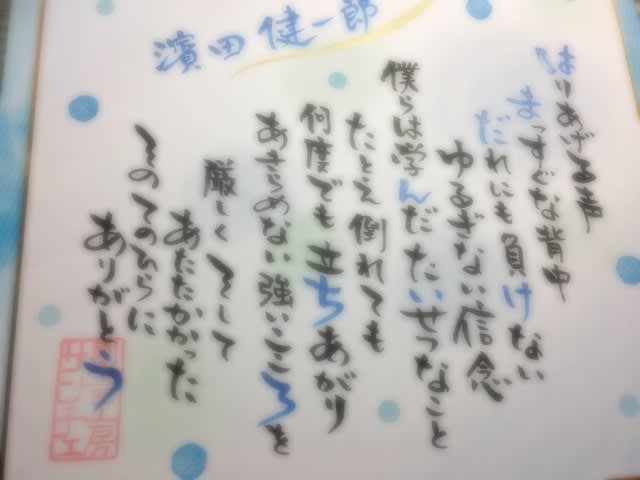 濱田健一郎
はりあげる声
まっすぐな背中
だれにも負けない
ゆるぎない信念
僕らは学んだたいせつなこと
たとえ倒れても
何度でも立ちあがり
あきらめない強いこころを
厳しくそして
あたたかかった
そのてのひらに
ありがとう